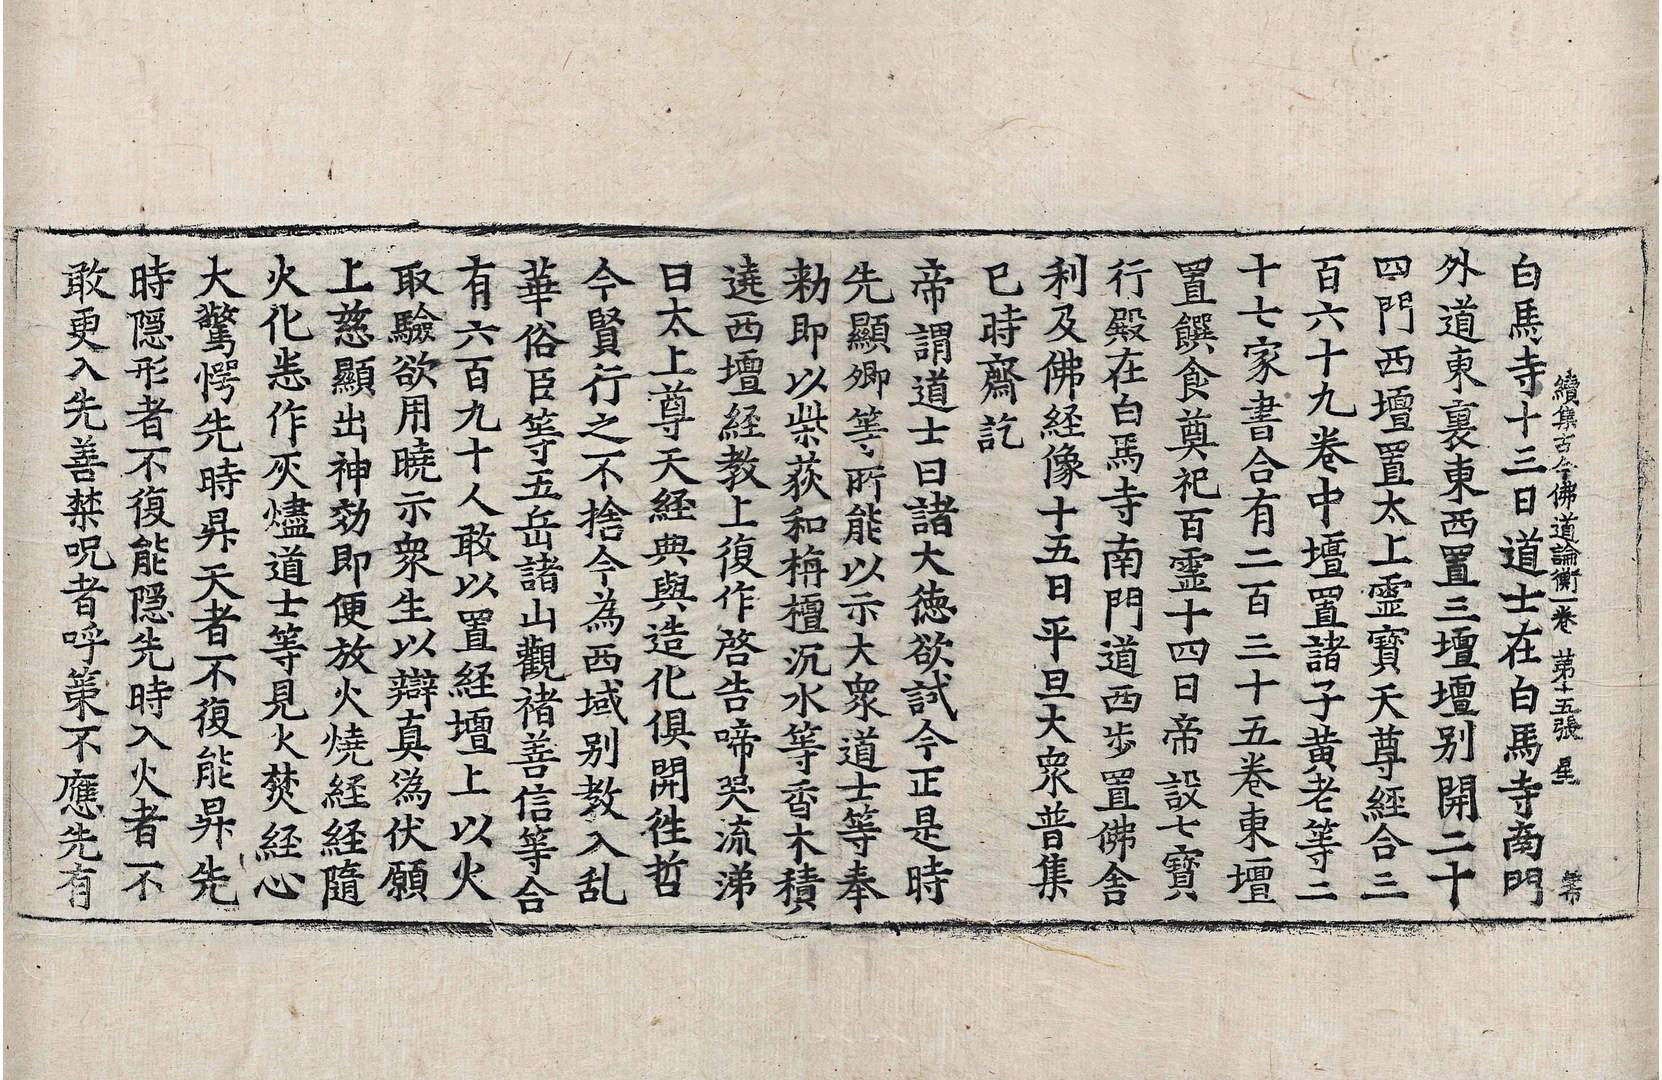 續集古今佛道論衡一卷 苐十五張 星
白馬寺十三日道士在白馬寺南門
外道東裏東西置三壇壇別開二十
四門西壇置太上靈寶天尊經合三
百六十九卷中壇置諸子黃老等二
十七家書合有二百三十五卷東壇
置饌食奠祀百靈十四日帝設七寶
行殿在白馬寺南門道西步置佛舍
利及佛経像十五日平旦大衆普集
巳時齋訖
帝謂道士曰諸大徳欲試今正是時
先顯卿等所能以示大衆道士等奉
勑即以柴荻和栴檀沉水等香木積
遶西壇経教上復作啓告啼哭流涕
曰太上尊天経典與造化俱開徃哲
今賢行之不捨今為西域別教入乱
華俗臣等五岳諸山觀褚善信等合
有六百九十人敢以置経壇上以火
取驗欲用曉示衆生以辯真偽伏願
上慈顯出神効即便放火燒経経隨
火化恚作灰燼道士等見火焚経心
大驚愕先時昇天者不復能昇先
時隱形者不復能隱先時入火者不
敢更入先善禁呪者呼策不應先有